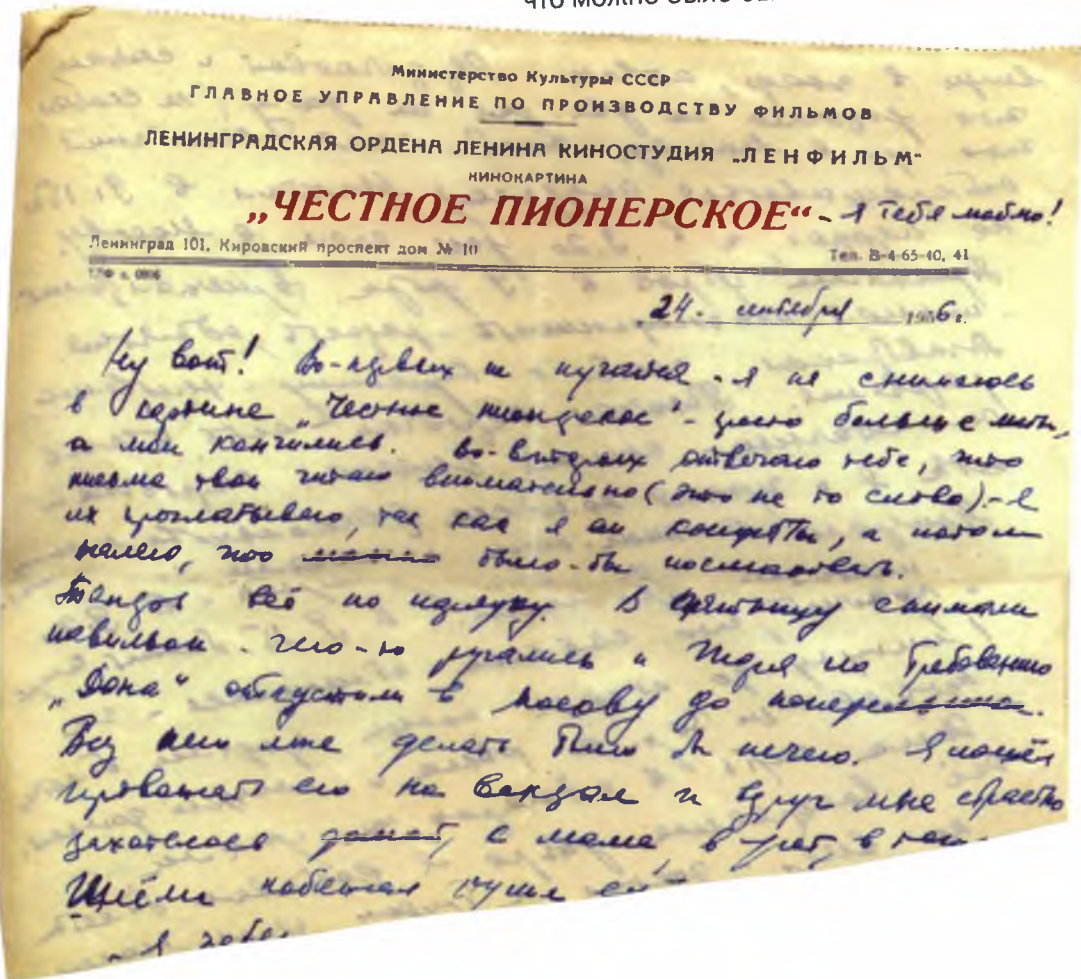 ЧТО МОЖНО БЫЛО
Министерство Культуры СССР
ГЛАВНОЕ УПРАВЛЕНИЕ ПО ПРОИЗВОДСТВУ ФИЛЬМОВ
ЛЕНИНГРАДСКАЯ ОРДЕНА ЛЕНИНА КИНОСТУДИЯ „ЛЕНФИЛЬМ"
КИНОКАРТИНА
„ЧЕСТНОЕ ПИОНЕРСКОЕ“ - я тебя люблю!
Ленинград 101, Кировский проспект дом № 10 Тел. В-4-65-40, 41
24. сентября 1956г.
Ну вот! Во-первых не пугайся - я не снимаюсь
в картине „Честное пионерское" - просто больше
а мои кончились. Во-вторых отвечаю тебе, что
письма твои читаю внимательно (это не то слово) - я
их проглатываю, так как я конфеты, а потом
жалею, что можно было-бы посмаковать.
всё по-прежнему. В пятницу снимали
павильон - чего-то ругались и по требованию
„Дона" отпустили в Москву до
Без него мне делать было бы нечего. Я пошёл
провожать его на вокзал и вдруг мне страстно
захотелось домой, к маме, в